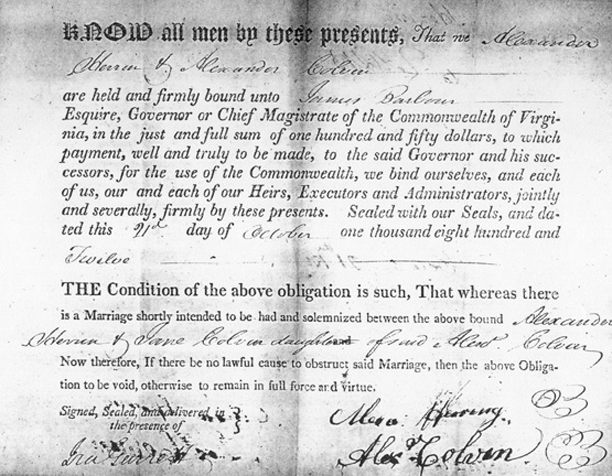 KNOW all men by these presents, That we Alexander
Herren & Alexander Colvin
are held and firmly bound unto James Barbour
Esquire, Governor or Chief Magistrate of the Commonwealth of Virgi-
nia, in the just and full sum of one hundred and fifty dollars, to which
payment, well and truly to be made, to the said Governor and his suc-
cessors, for the use of the Commonwealth, we bind ourselves, and each
of us, our and each of our Heirs, Executors and Administrators, jointly
and severally, firmly by these presents. Sealed with our Seals, and da-
ted this 21st day of October one thousand eight hundred and
Twelve
THE Condition of the above obligation is such, That whereas there
is a Marriage shortly intended to be had and solemnized between the above bound Alexander
Herren & Jane Colvin daughter of said Alexr Colvin
Now therefore, If there be no lawful cause to obstruct said Marriage, then the above Obliga-
tion to be void, otherwise to remain in full force and virtue.
Signed, Sealed, and delivered in
the presence of
Alexr Herring
Ira Garrett
Alexr Colvin